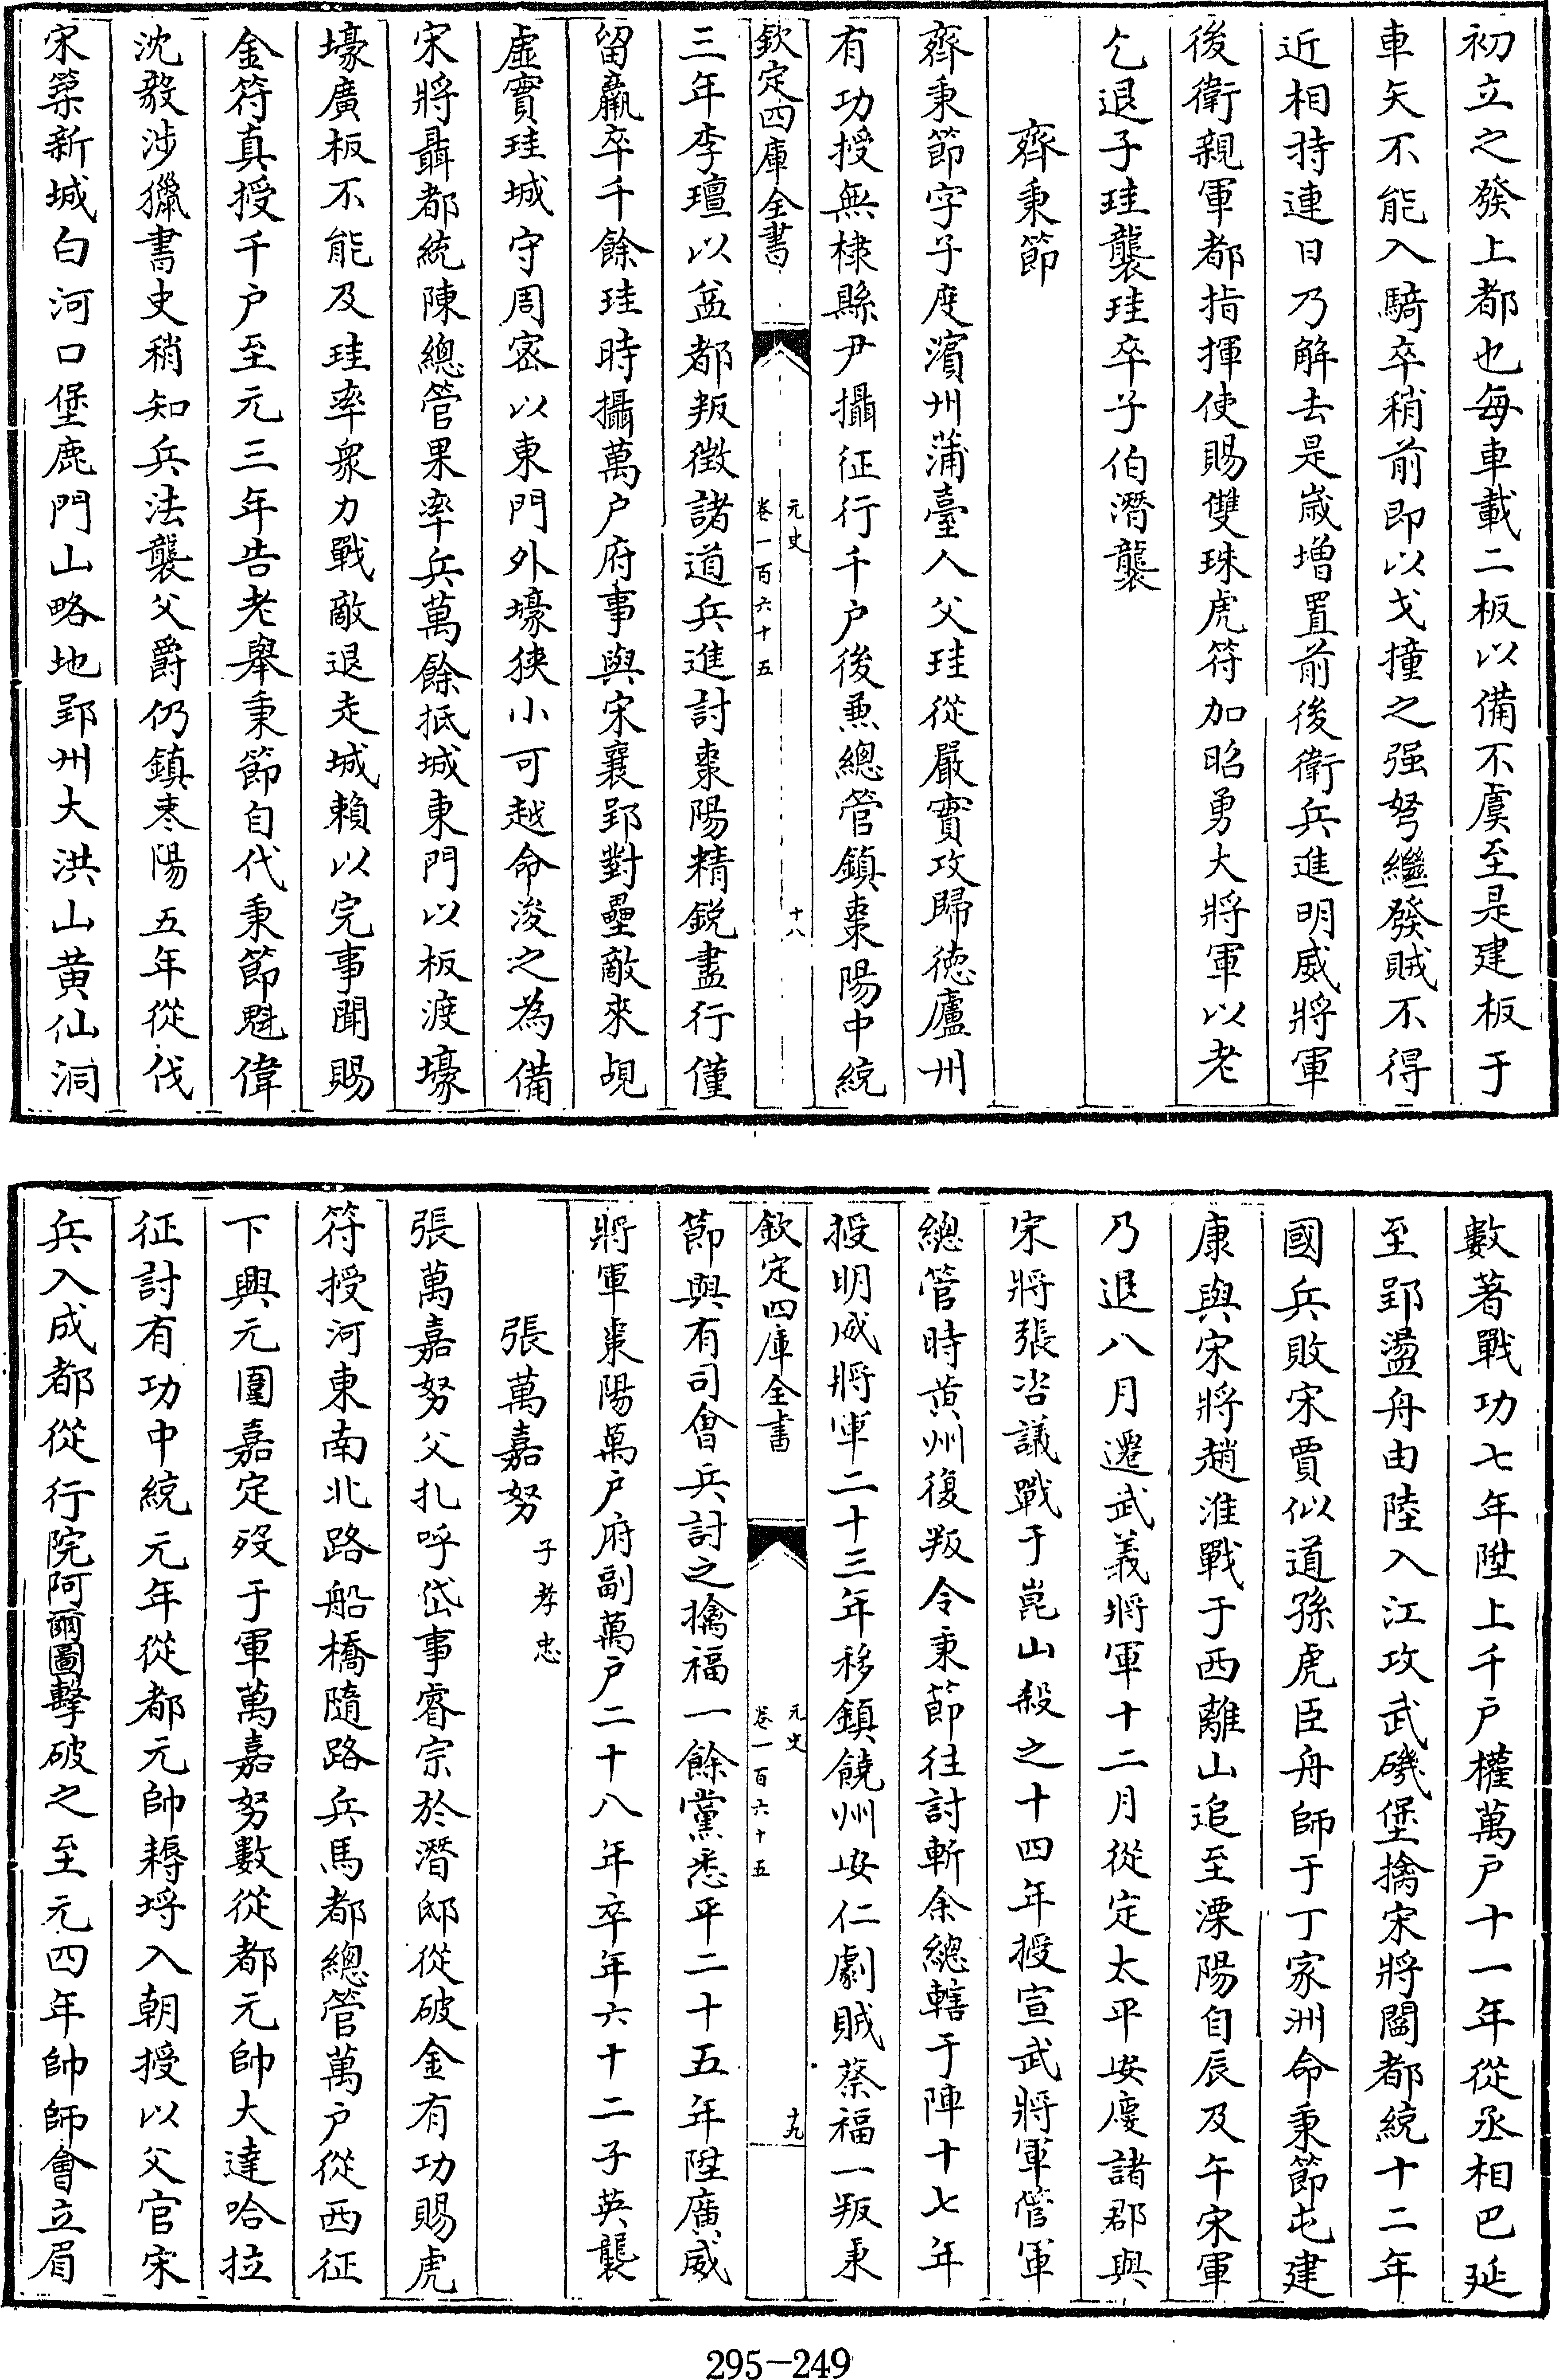 初立之發上都也每車載二板以備不虞至是建板于
車矢不能入騎卒稍前即以戈撞之强弩繼發賊不得
近相持連日乃解去是歲增置前後衛兵進明威將軍
後衛親軍都指揮使賜雙珠虎符加昭勇大將軍以老
乞退子珪襲珪卒子伯潛襲
齊秉節
齊秉節字子度濱州蒲臺人父珪從嚴實攻歸德廬州
有功授無棣縣尹攝征行千户後兼總管鎮棗陽中統
欽定四庫全書
元史
卷一百六十五
十八
三年李璮以益都叛徵諸道兵進討棗陽精鋭盡行僅
留羸卒千餘珪時攝萬户府事與宋襄郢對壘敵來覘
虛實珪城守周密以東門外壕狹小可越命浚之為備
宋將聶都統陳總管果率兵萬餘抵城東門以板渡壕
壕廣板不能及珪率衆力戰敵退走城賴以完事聞賜
金符真授千户至元三年告老舉秉節自代秉節魁偉
沈毅涉獵書史稍知兵法襲父爵仍鎮棗陽五年從伐
宋築新城白河口堡鹿門山略地郢州大洪山黄仙洞
數著戰功七年陞上千户權萬户十一年從丞相巴延
至郢盪舟由陸入江攻武磯堡擒宋將閻都統十二年
國兵敗宋賈似道孫虎臣舟師于丁家洲命秉節屯建
康與宋將趙淮戰于西離山追至溧陽自辰及午宋軍
乃退八月遷武義將軍十二月從定太平安慶諸郡與
宋將張咨議戰于崑山殺之十四年授宣武將軍管軍
總管時黄州復叛令秉節往討斬余總轄于陣十七年
授明威將軍二十三年移鎮饒州安仁劇賊蔡福一叛秉
欽定四庫全書
元史
卷一百六十五
十九
節與有司會兵討之擒福一餘黨悉平二十五年陞廣威
將軍棗陽萬户府副萬户二十八年卒年六十二子英襲
張萬嘉努 子孝忠
張萬嘉努父扎呼岱事睿宗於潛邸從破金有功賜虎
符授河東南北路船橋隨路兵馬都總管萬户從西征
下興元圍嘉定殁于軍萬嘉努數從都元帥大達哈拉
征討有功中統元年從都元帥耨埒入朝授以父官宋
兵入成都從行院阿爾圖擊破之至元四年帥師會立眉
295-249